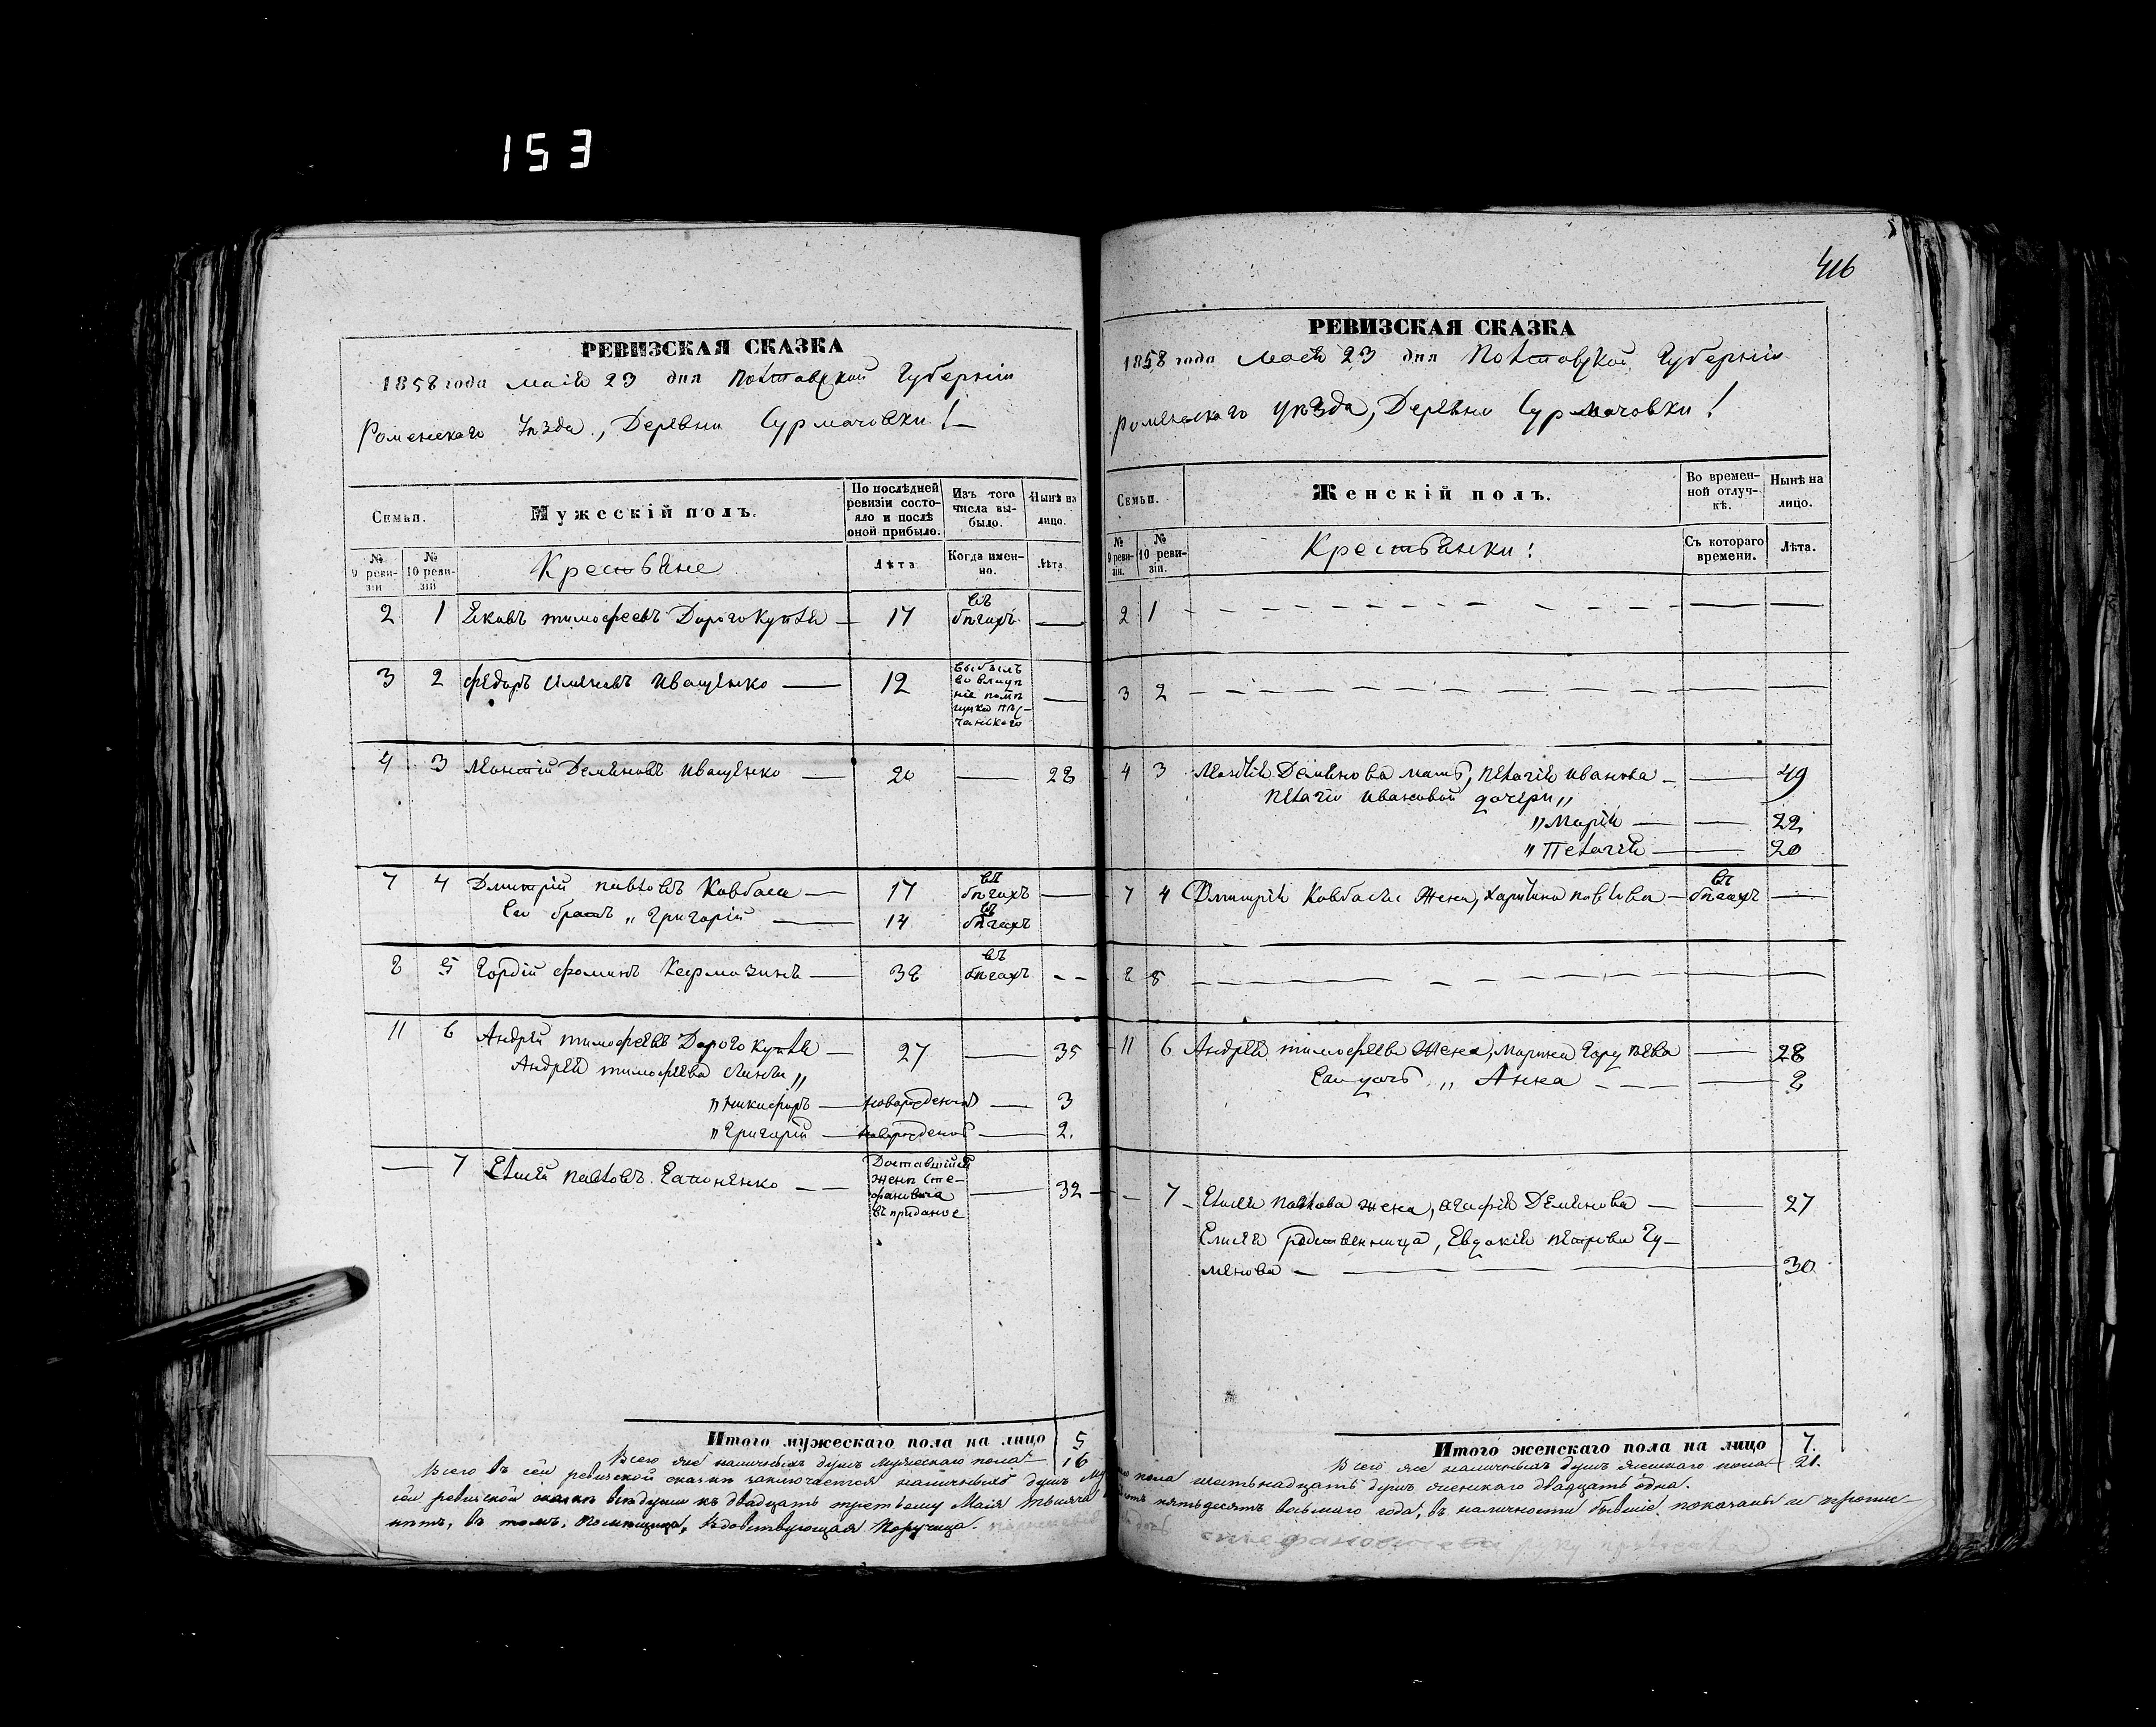 153
416
РЕВИЗСКАЯ СКАЗКА
1858 года маія 23 дня Полтавской Губерніи
Роменскаго Уѣзда, Деревни Сурмачовки!
Семьи.
Мужескій полъ.
По послѣдней ревизіи состояло и послѣ оной прибыло.
Изъ того числа выбыло.
Нынѣ на лицо.
№ 9 ревизіи
№ 10 ревизіи
Крестьяне
Лѣта
Когда именно.
Лѣта
2 1 Яковъ тимофеевъ Дорогокупля — 17 въ бѣгахъ —
3 2 федоръ Семеновъ Иващенко — 12 выбылъ во владѣніе помѣщика —
4 3 Леонтій Демяновъ Иващенко — 20 — 28
7 4 Дмитрій павловъ Ковбаса — 17 въ бѣгахъ —
Его братъ „ Григорій — 14 въ бѣгахъ
8 5 Гордій фоминъ — 38 въ бѣгахъ - -
11 6 Андрей тимофеевъ Дорогокупля — 27 — 35
Андрея тимофеева сыны „
„ никифоръ — новорожденный — 3
„ Григорій — новорожденный — 2.
— 7 Елисей павловъ Гапоненко — — Доставшійся женѣ Стефановича въ приданое — 32
Итого мужескаго пола на лицо 5
Всего же наличныхъ душъ мужескаго пола 16
РЕВИЗСКАЯ СКАЗКА
1858 года маія 23 дня Полтавской Губерніи
Роменскаго уѣзда, Деревни Сурмачовки!
Семьи.
Женскій полъ.
Во временной отлучкѣ.
Нынѣ на лицо.
№ 9 ревизіи.
№ 10 ревизіи.
Крестьянки!
Съ котораго времени.
Лѣта.
2 1
3 2
4 3 Леонтія Демянова мать, пелагія иванова — — 49
пелагіи ивановой дочери „
„ Марія — — 22
„ Пелагія — 20
7 4 Дмитрія Ковбасы жена, Харитина павлова — въ бѣгахъ —
8 5
11 6 Андрея тимофеева жена, Марина — 28
Его дочь „ Анна - — — 2
- 7 - Елисея павлова жена, агафія Демянова — — 27
Елисея родственница, Евдокія петрова Гуменова — 30
Итого женскаго пола на лицо 7.
Всего же наличныхъ душъ женскаго пола 21.
Всего въ сей ревизской сказкѣ заключается наличныхъ душъ пола шестьнадцать душъ женскаго двадцать одна.
сей ревизской сказки всѣ души къ двадцать третьему Маія тысяча пятьдесятъ восьмого года, въ наличности бывшіе, показаны и
въ томъ, Помѣщица, вдовствующая Поручица.